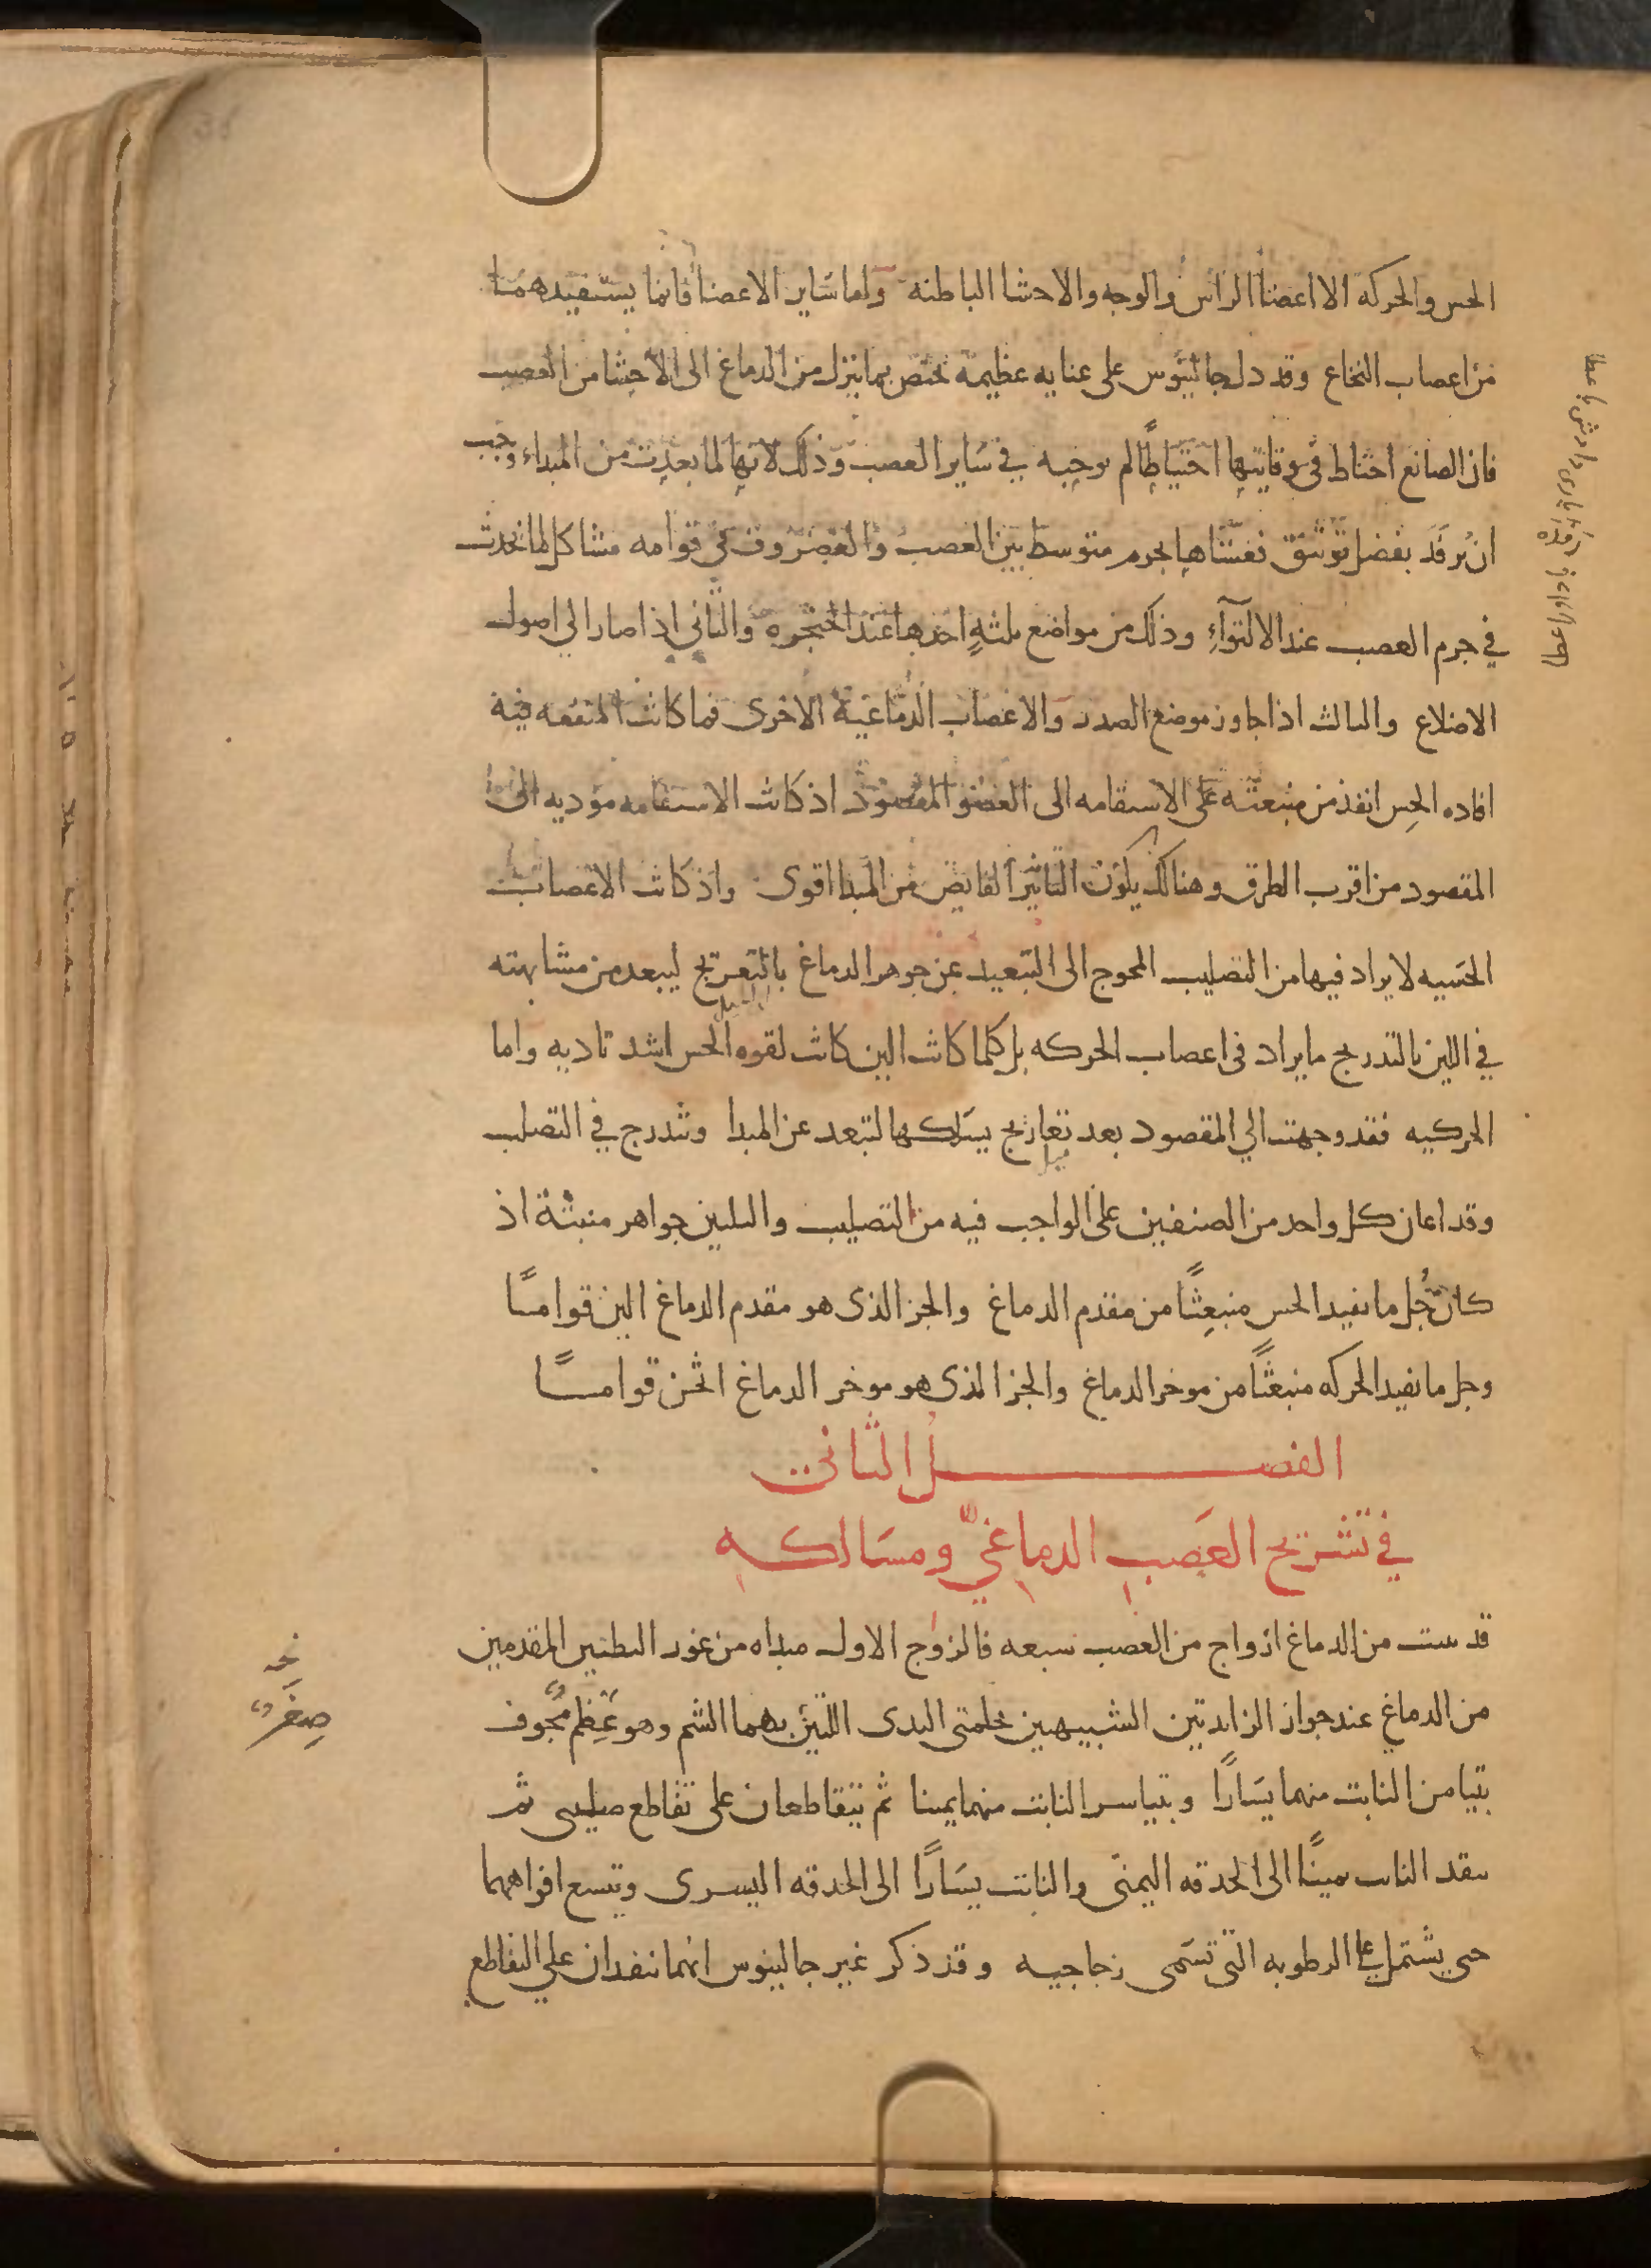 الحس والحركه الا اعضا الراس والوجه والاحشا الباطنه واما ساير الاعضا فانما يستفيدهما
من اعصاب النخاع وقد دل جالينوس على عنايه عظيمة تختص بما ينزل من الدماغ الى الاحشا من العصب
فان الصانع احتاط في وقايتها احتياطًا لم يوجبه في ساير العصب وذلك لانها لما بعدت من المبداء وجب
ان ترفد بفضل توثيق فغشاها بجرم متوسط بين العصب والغضروف في قوامه مشاكل لما يحدث
في جرم العصب عند الالتوآءِ وذلك من مواضع ثلثةٍ احدها عند الحنجره والثاني اذا صار الي اصول
الاضلاع والثالث اذا جاوز موضع الصدر والاعصاب الدماغية الاخرى فما كانت المنفعه فيه
افاده الحِس انفذ من منبعثه على الاستقامه الى العضو المقصود اذ كانت الاستقامه مؤديه الى
المقصود من اقرب الطرق وهنالك يكون التاثير الفايض من المبدا اقوى واذ كانت الاعصاب
الحسّيه لا يراد فيها من التصليب المحوج الى التبعيد عن جوهر الدماغ بالتعريج ليبعد من مشابهته
في اللين بالتدريج ما يراد فى اعصاب الحركه بل كلما كانت الين كانت لقوه الحس اشد تاديه واما
الحركيه فقد وجهت الي المقصود بعد تعاريج يسلكها لتبعد عن المبدا وتتدرج في التصلب
وقد اعان كل واحد من الصنفين على الواجب فيه من التصليب والتليين جواهر منبثة اذ
كان جُل ما يفيد الحس منبعثًا من مقدم الدماغ والجز الذى هو مقدم الدماغ الين قوامًا
وجل ما يفيد الحركه منبعثًا من موخر الدماغ والجز الذى هو موخر الدماغ اثخن قوامًا
الفصل الثانى
في تشريح العَصب الدماغيّ ومسَالكه
قد ينبت من الدماغ ازواج من العصب سبعه فالزوج الاول مبداه من غور البطنين المقدمين
من الدماغ عند جواز الزايدتين الشبيهين بحلمتى الثدى اللتين بهما الشم وهو عَظِم مجوف
يتيامن النابت منهما يسَارًا ويتياسر النابت منهما يمينا ثم يتقاطعان على تقاطع صليبى ثم
ينفذ النابت يمينًا الى الحدقه اليمنى والنابت يسَارًا الى الحدقه اليسرى وتتسع افواههما
حتى يشتمل على الرطوبه التى تسَمى زجاجيه وقد ذكر غير جالينوس انهما ينفذان على التقاطع
صِغَر